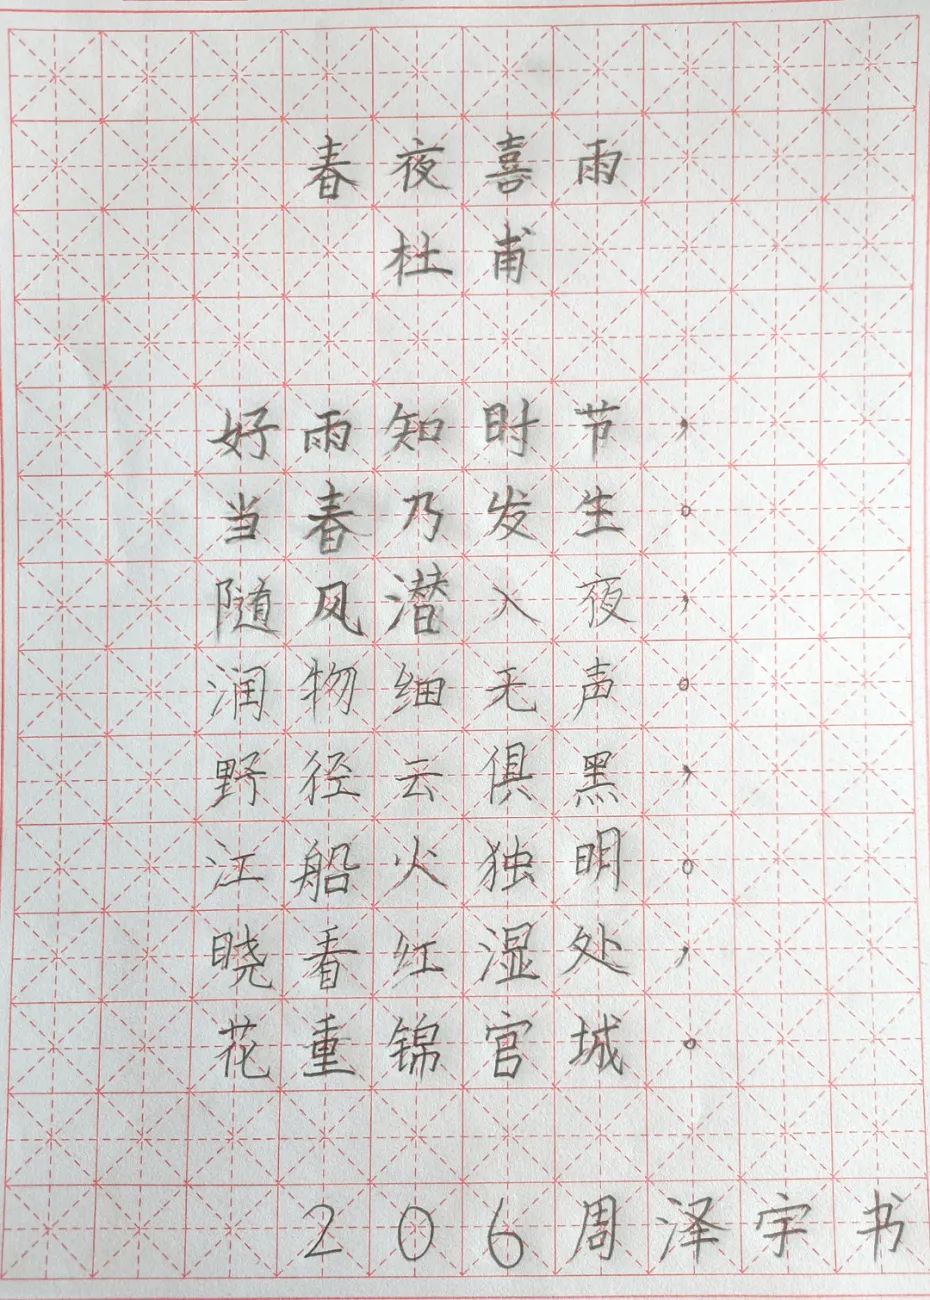 春夜喜雨
杜甫
好雨知时节，
当春乃发生。
随风潜入夜，
润物细无声。
野径云俱黑，
江船火独明。
晓看红湿处，
花重锦官城。
206周泽宇书